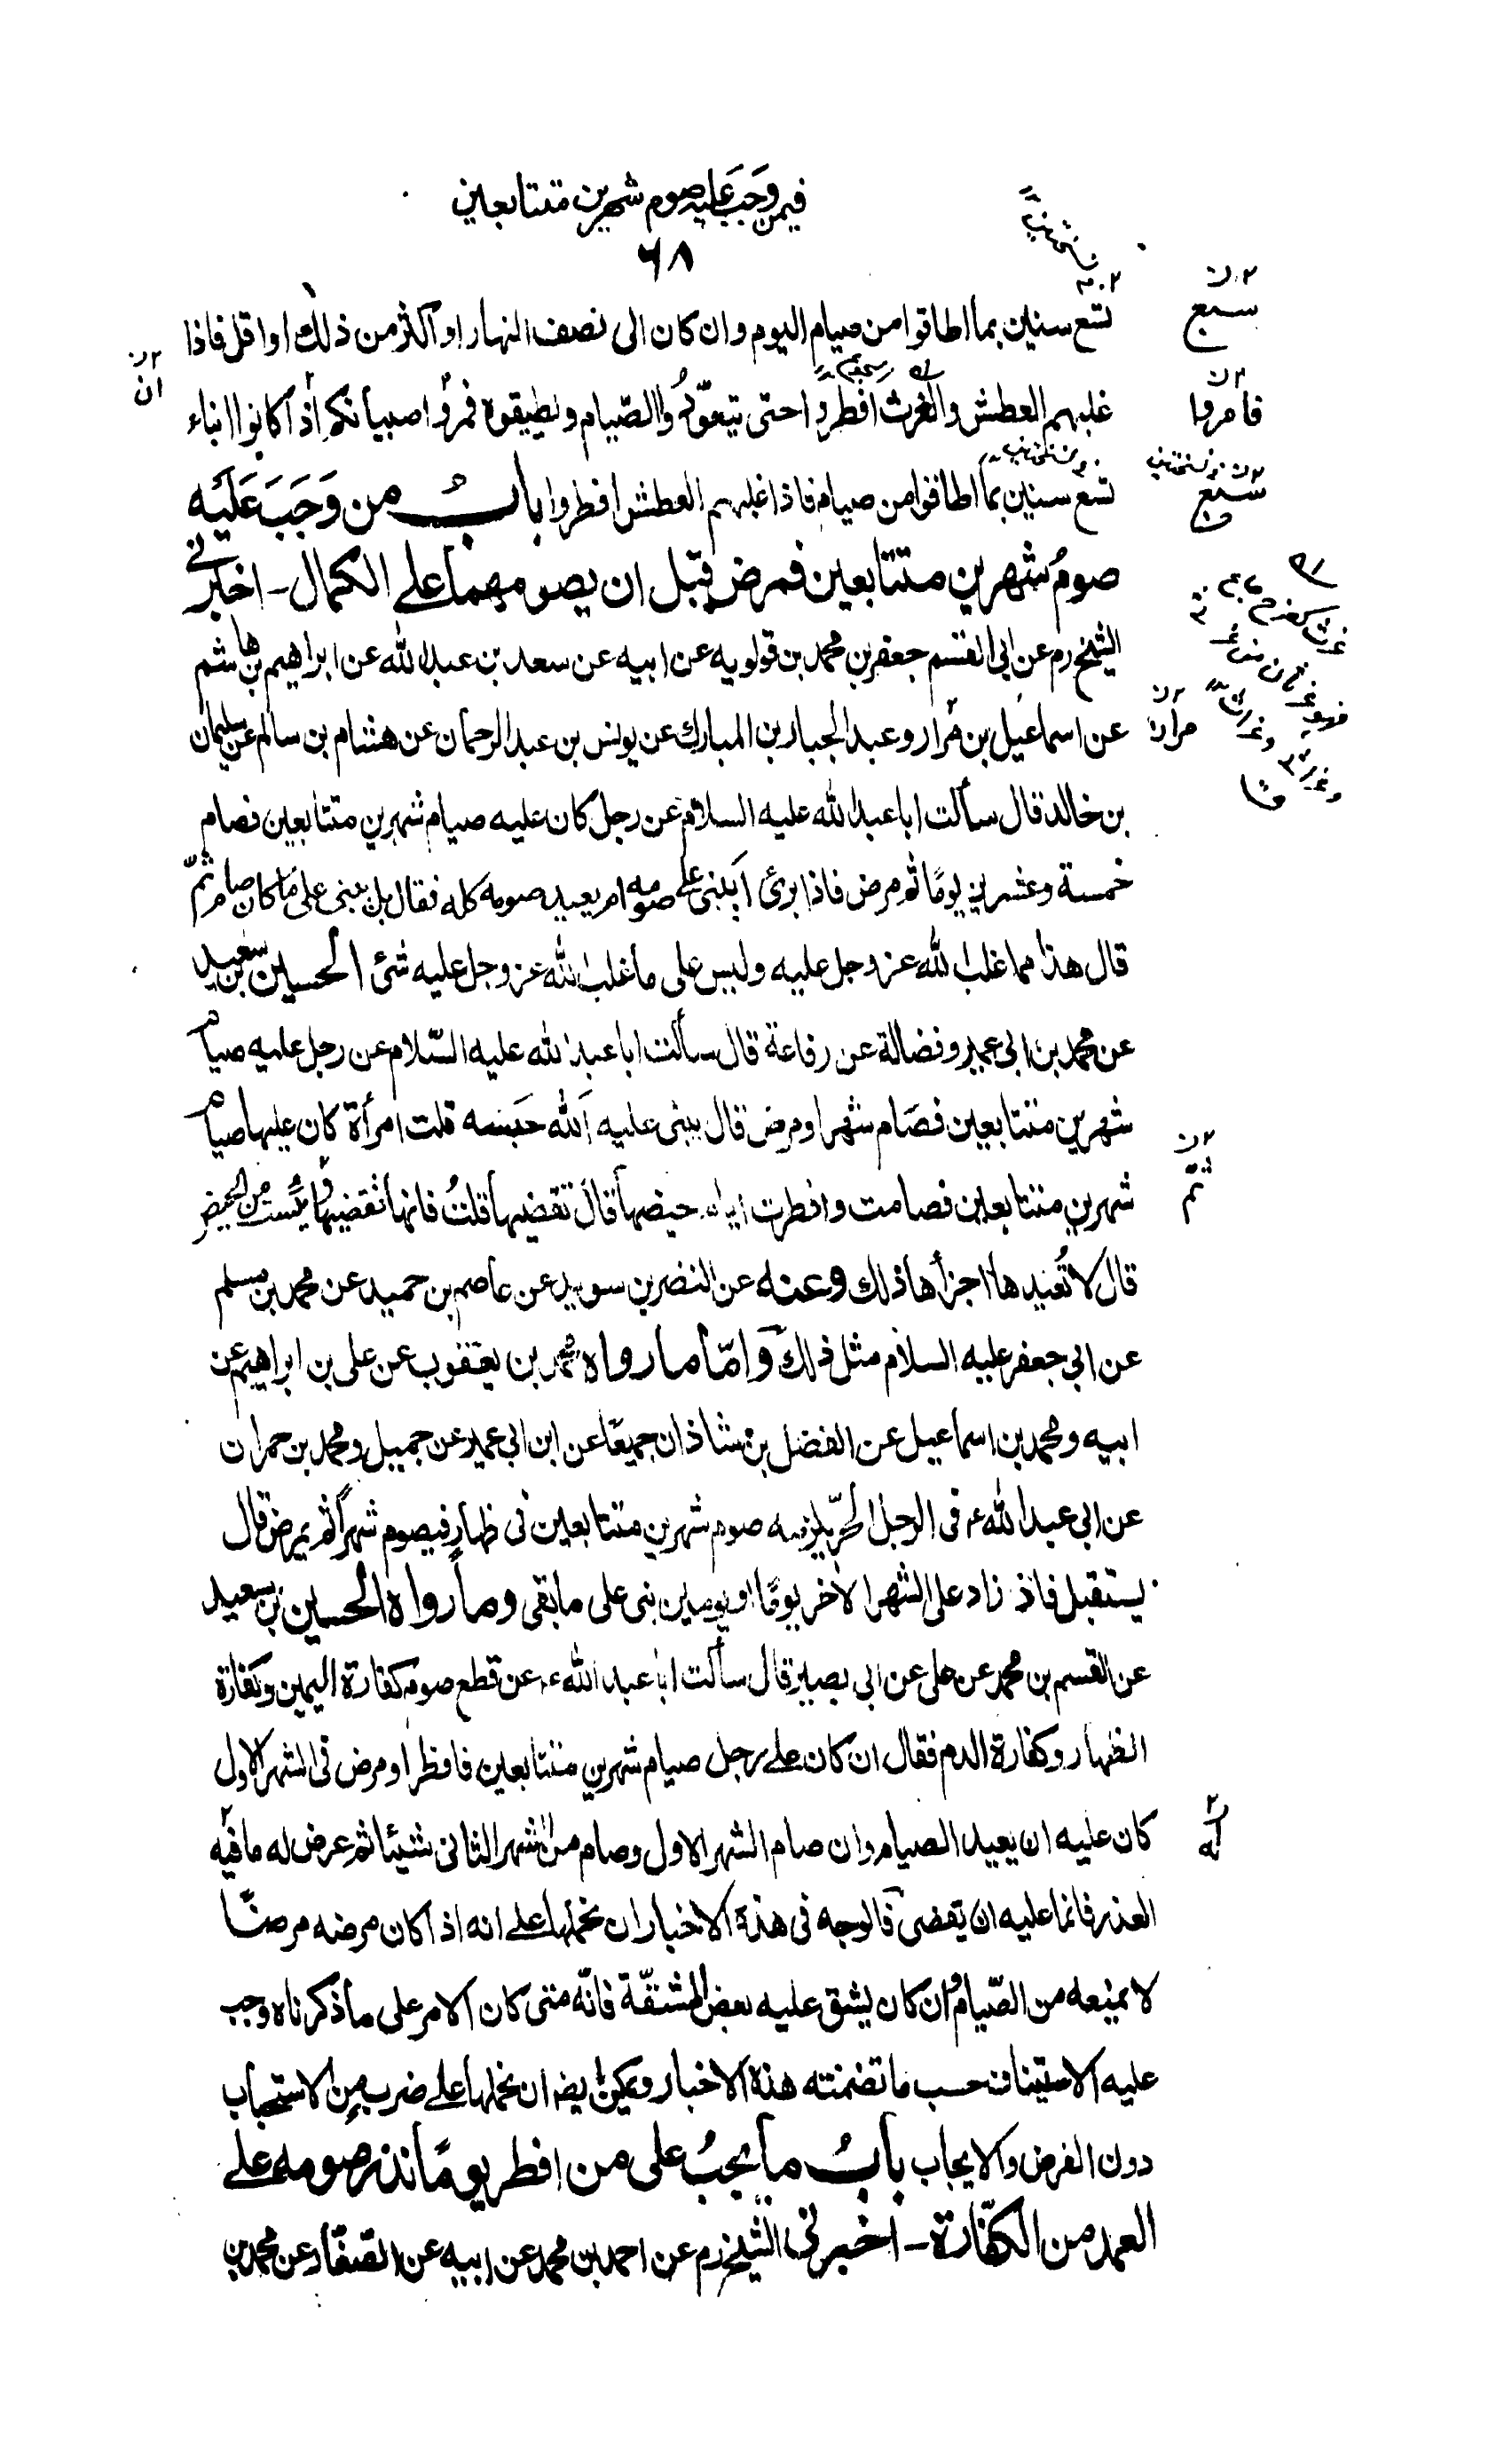 فيمن وجب عليه صوم شهرين متتابعين
٦٨
تسع سنين بما اطاقوا من صيام اليوم وان كان الى نصف النهار او اكثر من ذلك او اقل فاذا
غلبهم العطش والغرث افطروا حتى يتعوّدوا الصّيام ويطيقوه فمروا صبيانكم اذا كانوا ابناء
تسع سنين بما اطاقوا من صيام فاذا غلبهم العطش افطروا باب من وَجَبَ عَلَيْه
صومُ شهرين متتابعين فمرض قبل ان يصومهما على الكمال - اخبرني
الشيخ رم عن ابى القسم جعفر بن محمد بن قولويه عن ابيه عن سعد بن عبد الله عن ابراهيم بن هاشم
عن اسماعيل بن مرار وعبد الجبار بن المبارك عن يونس بن عبد الرحمان عن هشام بن سالم عن سليمان
بن خالد قال سألت ابا عبد الله عليه السلام عن رجل كان عليه صيام شهرين متتابعين فصام
خمسة وعشرين يومًا ثم مرض فاذا برئ أيبنى على صومه ام يعيد صومه كله فقال بل يبنى على ما كان صام ثمّ
قال هذا مما غلب الله عز وجل عليه وليس على ما غلب الله عز وجل عليه شئ الحسين بن سعيد
عن محمد بن ابى عمير وفضالة عن رفاعة قال سألت ابا عبد الله عليه السّلام عن رجل عليه صيام
شهرين متتابعين فصَام شهرا ومرض قال يبنى عليه اَلله حَبَسه قلت امرأة كان عليها صيام
شهرين متتابعين فصامت وافطرت ايام حيضها قال تقضيها قلتُ فانها تقضيها ثم يئست من الحيض
قال لا تُعيدها اجزأها ذلك وعنه عن النضر بن سويد عن عاصم بن حميد عن محمد بن مسلم
عن ابى جعفر عليه السلام مثل ذلك وَامّا ما رواه محمد بن يعقوب عن على بن ابراهيم عن
ابيه ومحمد بن اسماعيل عن الفضل بن شاذان جميعًا عن ابن ابى عمير عن جميل ومحمد بن حمران
عن ابى عبد الله ع فى الرجل الحرّ يلزمه صوم شهرين متتابعين فى ظهارٍ فيصوم شهراً ثم يمرض قال
يستقبل فاذ زاد على الشهر الاخر يومًا او يومين بنى على ما بقى وما رواه الحسين بن سعيد
عن القسم بن محمد عن على عن ابى بصير قال سألت ابا عبد الله ع عن قطع صوم كفارة اليمين وكفارة
الظهار وكفارة الدم فقال ان كان على رجل صيام شهرين متتابعين فافطر او مرض فى الشهر الاول
كان عليه ان يعيد الصيام وان صام الشهر الاول وصام من الشهر الثانى شيئا ثم عرض له ما فيه
العذر فانما عليه ان يقضى فالوجه فى هذه الاخبار ان نحملها على انه اذا كان مرضه مرضًا
لا يمنعه من الصّيام وان كان يشق عليه بعض المشقّة فانّه متى كان الامر على ما ذكرناه وجب
عليه الاستيناف حسب ما تضمنته هذه الاخبار ويمكن ايضه ان نحملها على ضرب من الاستحباب
دون الفرض والايجاب بابُ ما يجبُ على من افطر يومًا نذر صومه على
العمد من الكفّارة - اخبرنى الشيخ رم عن احمد بن محمد عن ابيه عن الصفّار عن محمد بن
سبع
ان
فامروا
سبع
مران
ثم
له